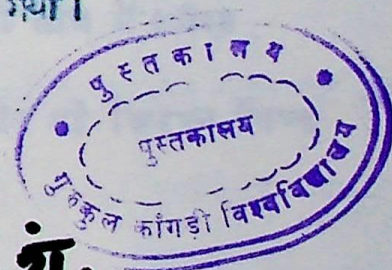 गया।
पुस्तकालय
पुस्तकालय
गुरुकुल काँगड़ी विश्वविद्यालय